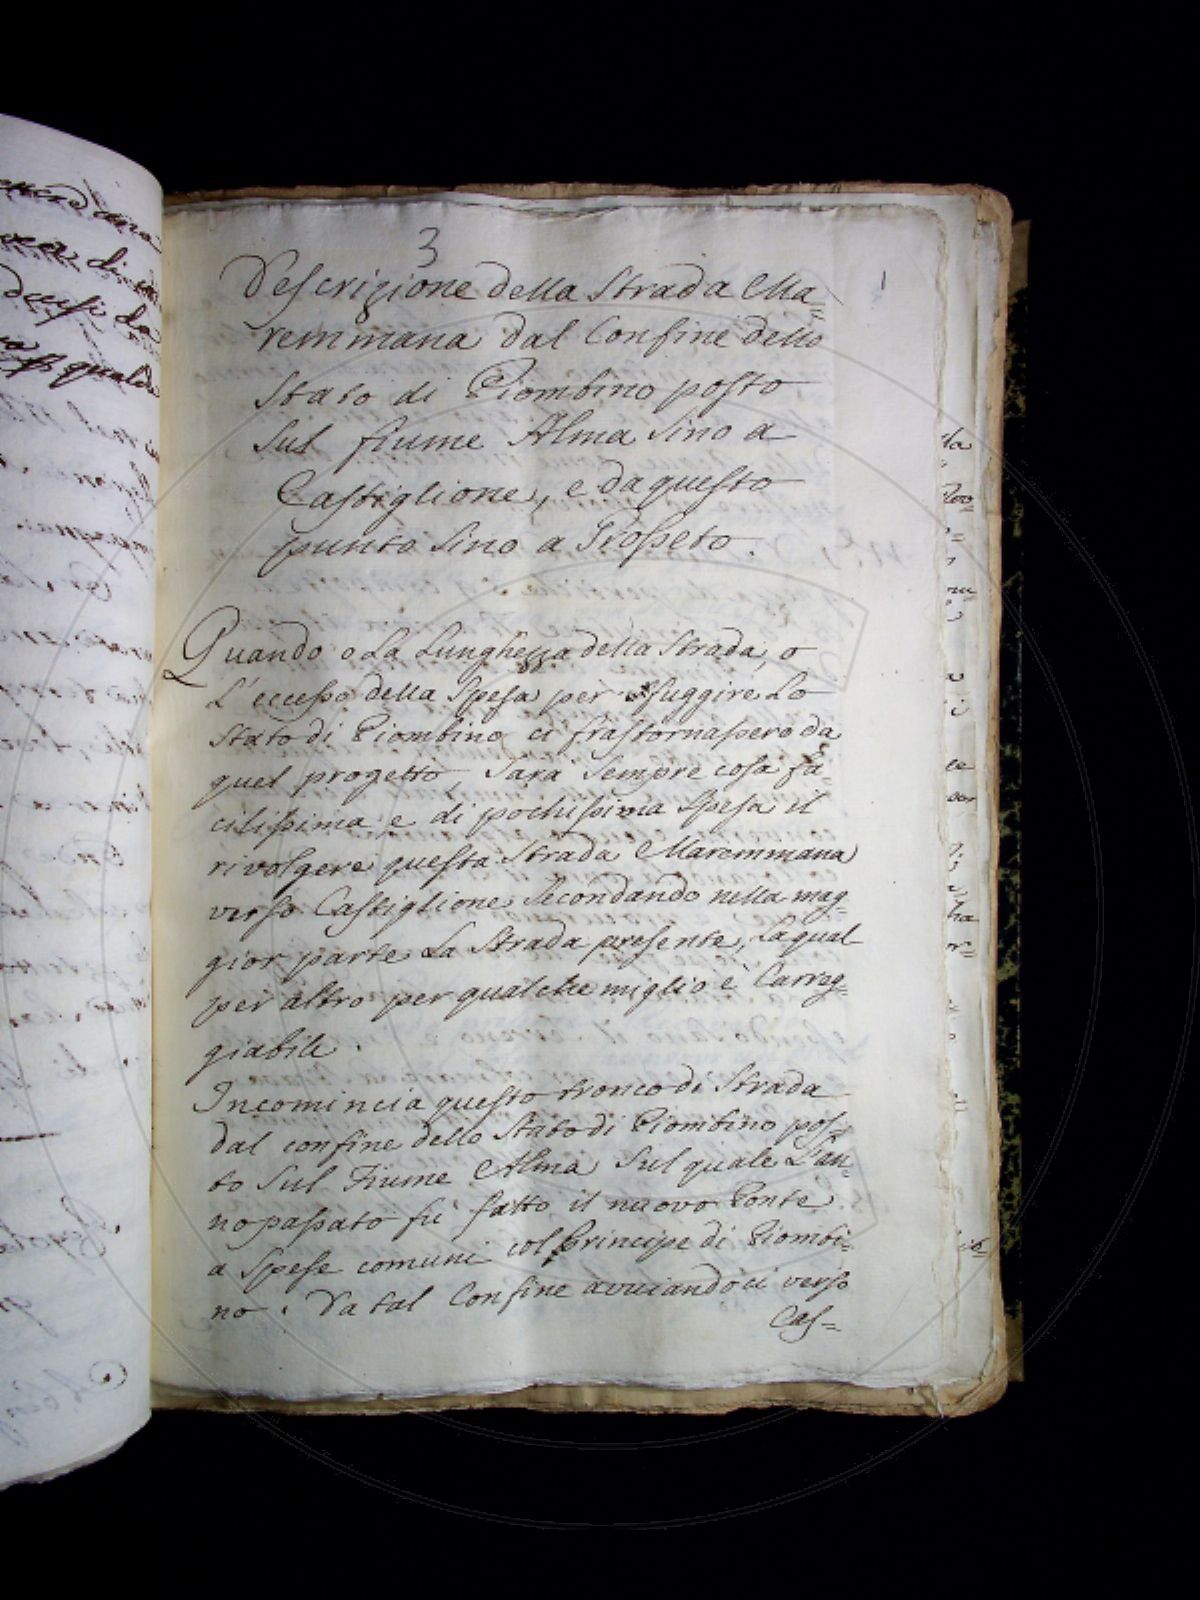 3
Descrizione della Strada Ma=
remmana dal Confine dello
Stato di Piombino posto
sul fiume Alma sino a
Castiglione, e da questo
punto sino a Grosseto.
1
Quando o La Lunghezza della Strada, o
L'eccesso della Spesa per isfuggire Lo
Stato di Piombino ci frastornassero da
quel progetto, sarà sempre cosa fa=
cilissima e di pochissima Spesa il
rivolgere questa Strada Maremmana
verso Castiglione secondando nella mag=
gior parte La Strada presente, La qual
per altro per qualche miglio è Carreg=
giabile.
Incomincia questo tronco di Strada
dal confine dello Stato di Piombino pos=
to sul Fiume Alma sul quale L'an=
no passato fù fatto il nuovo Ponte
a Spese comuni col Principe di Piombi=
no. Da tal Confine avviandoci verso
Cas=